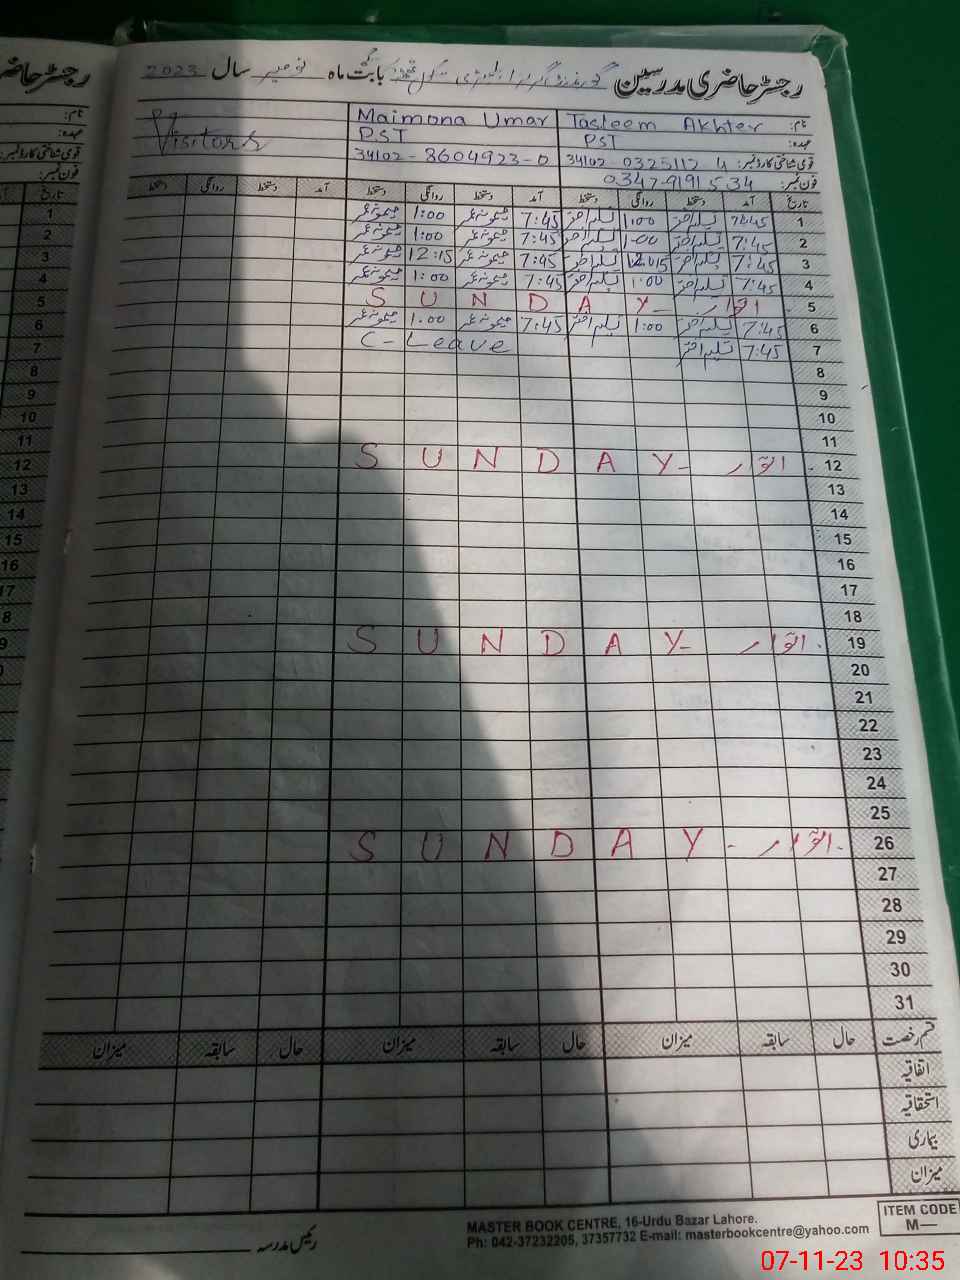 رجسٹر حاضری مدرسین گورنمنٹ گرلز ایلیمنٹری سکول بابت ماہ نومبر سال 2023
نام: Tasleem Akhter Maimona Umar Visitors
عہدہ: PST PST
قومی شناختی کارڈ نمبر: 34102-0325112-4 34102-8604923-0
فون نمبر: 0347-9191534
تاریخ آمد دستخط روانگی دستخط آمد دستخط روانگی دستخط آمد دستخط روانگی دستخط
1 7:45 تسلیم اختر 1:00 تسلیم اختر 7:45 میمونہ عمر 1:00 میمونہ عمر
2 7:45 تسلیم اختر 1:00 تسلیم اختر 7:45 میمونہ عمر 1:00 میمونہ عمر
3 7:45 تسلیم اختر 12:15 تسلیم اختر 7:45 میمونہ عمر 12:15 میمونہ عمر
4 7:45 تسلیم اختر 1:00 تسلیم اختر 7:45 میمونہ عمر 1:00 میمونہ عمر
5 SUNDAY - اتوار
6 7:45 تسلیم اختر 1:00 تسلیم اختر 7:45 میمونہ عمر 1:00 میمونہ عمر
7 7:45 تسلیم اختر C-Leave
8
9
10
11
12 SUNDAY - اتوار
13
14
15
16
17
18
19 SUNDAY - اتوار
20
21
22
23
24
25
26 SUNDAY - اتوار
27
28
29
30
31
قسم رخصت حال سابقہ میزان حال سابقہ میزان حال سابقہ میزان
اتفاقیہ
استحقاقیہ
بیماری
میزان
رئیس مدرسہ
MASTER BOOK CENTRE, 16-Urdu Bazar Lahore.
Ph: 042-37232205, 37357732 E-mail: masterbookcentre@yahoo.com
ITEM CODE
M—
07-11-23 10:35